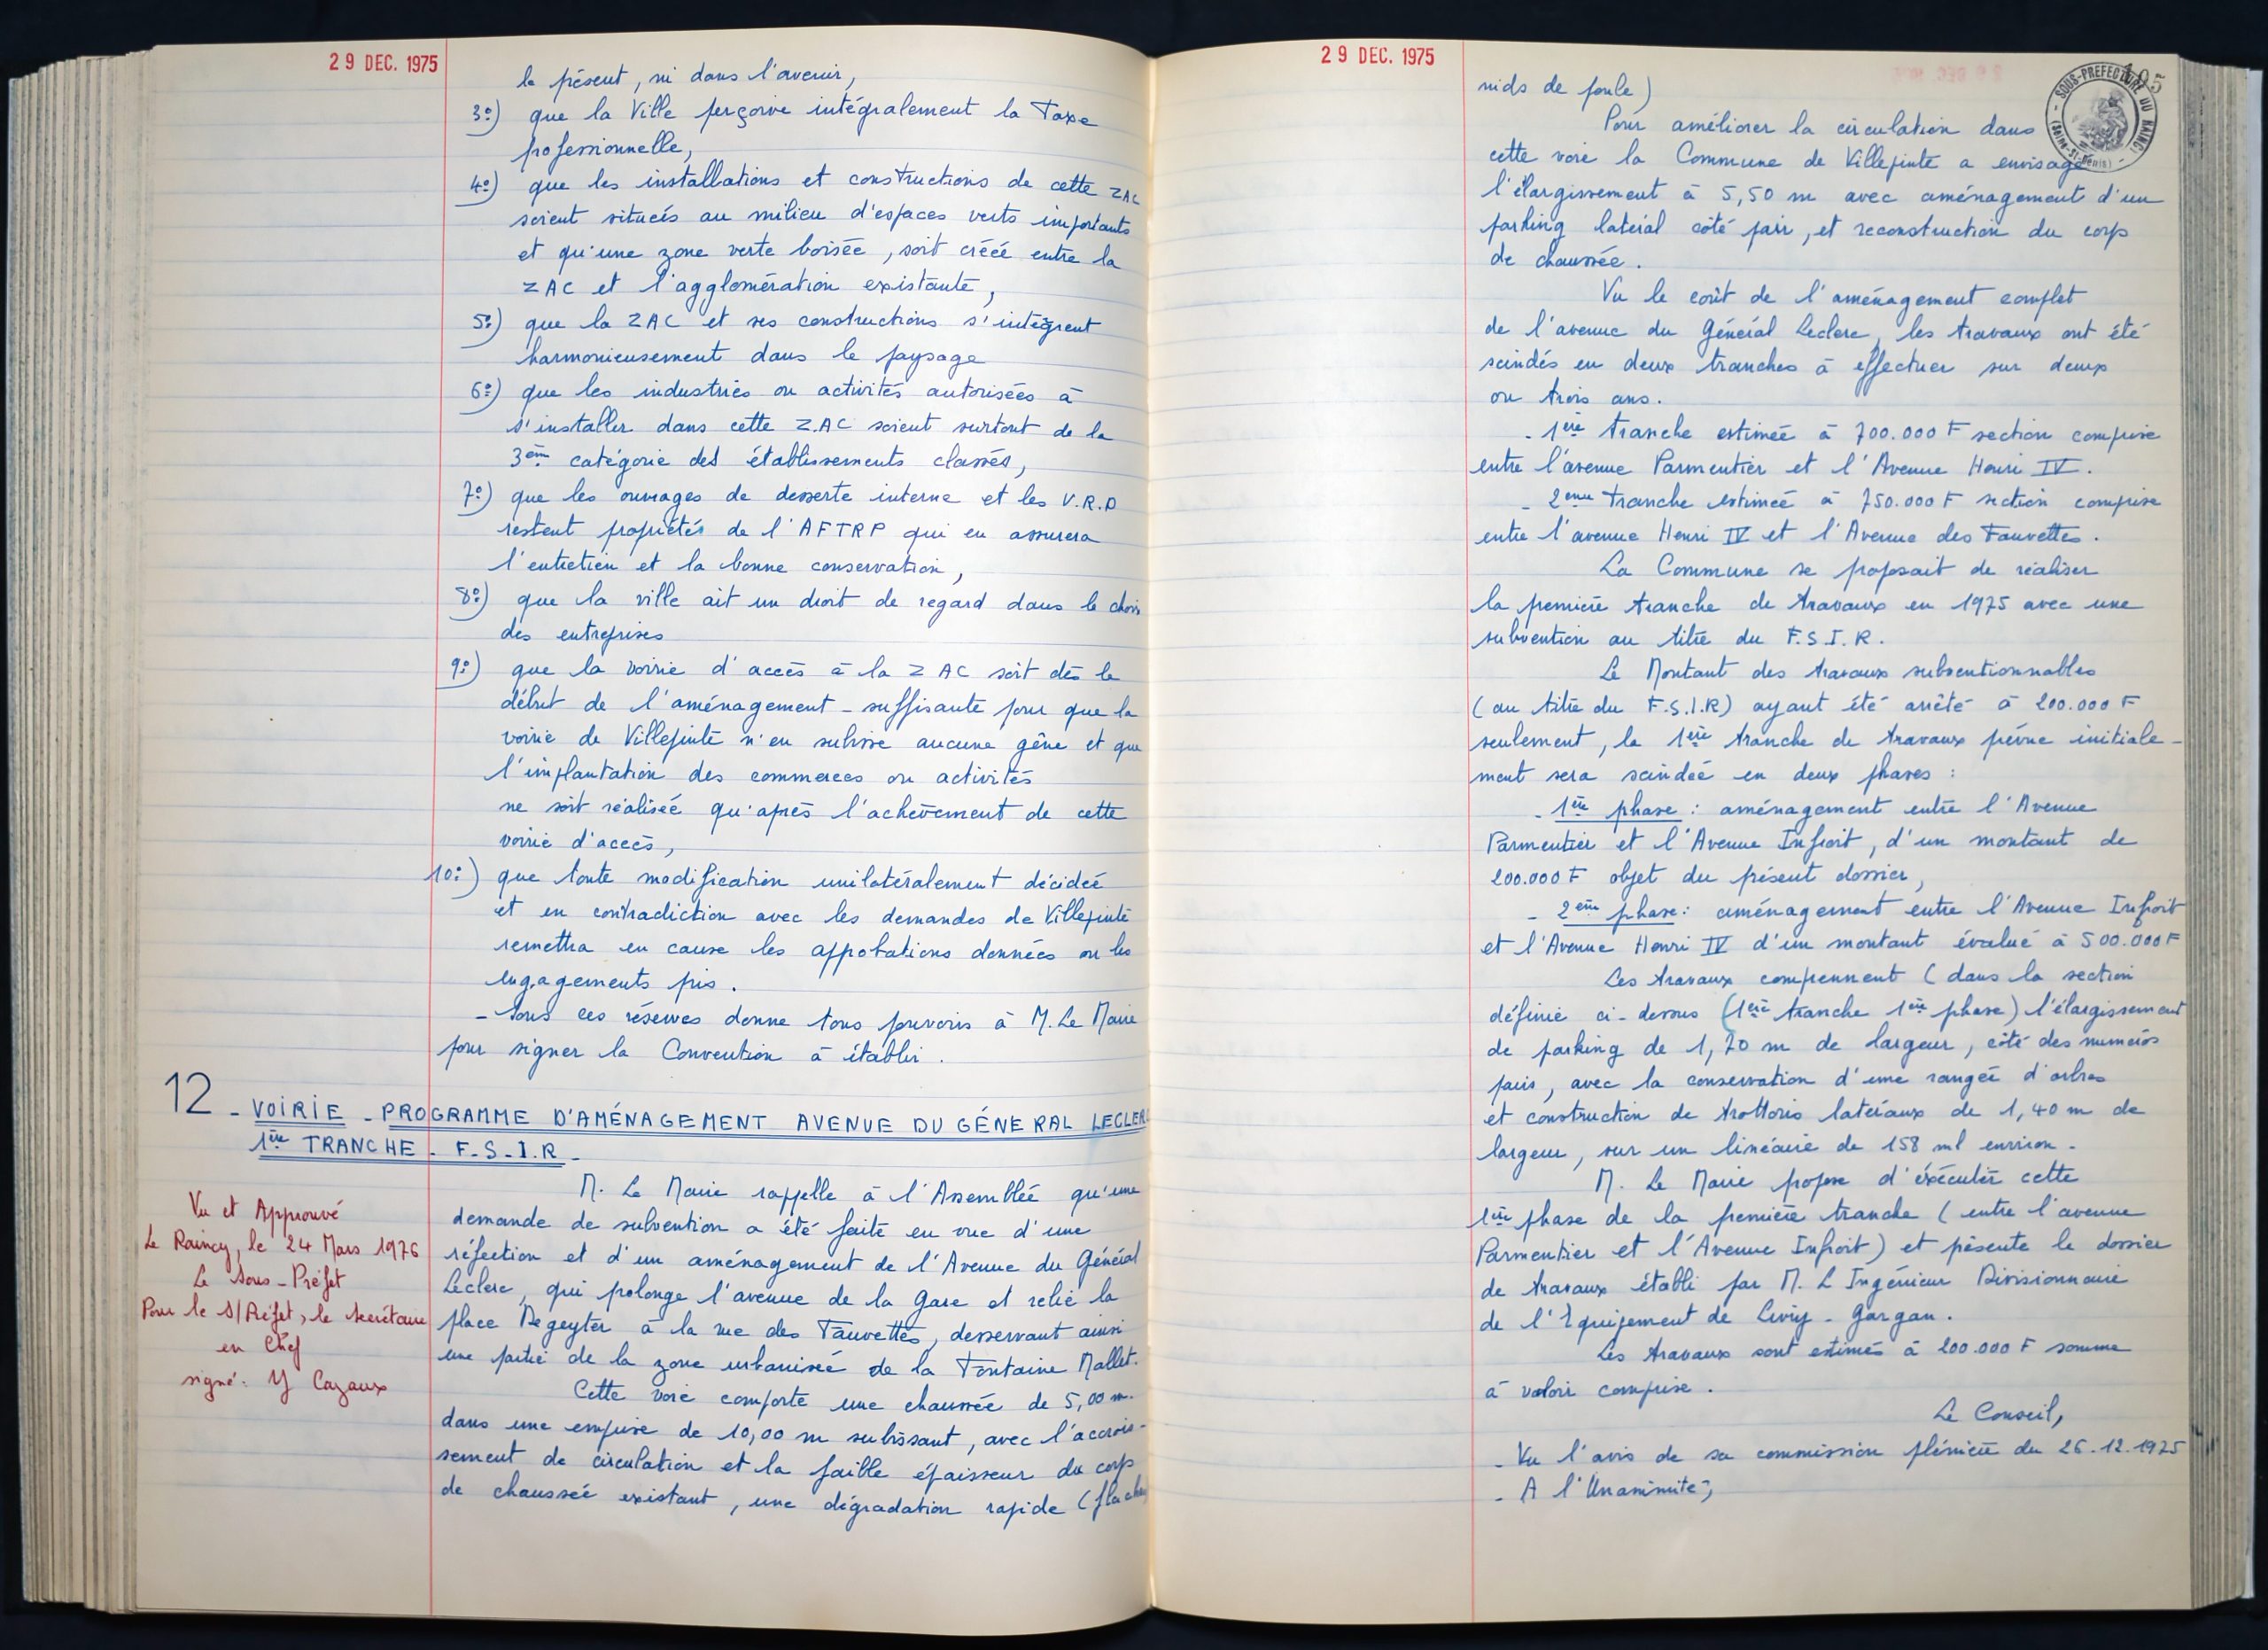 29 DEC. 1975
le présent, ni dans l'avenir,
3°) que la Ville perçoive intégralement la Taxe
professionnelle,
4°) que les installations et constructions de cette ZAC
soient situées au milieu d'espaces verts importants
et qu'une zone verte boisée, soit créée entre la
ZAC et l'agglomération existante,
5°) que la ZAC et ses constructions s'intègrent
harmonieusement dans le paysage
6°) que les industries ou activités autorisées à
s'installer dans cette Z.AC soient surtout de la
3ème catégorie des établissements classés,
7°) que les ouvrages de desserte interne et les V.R.D
restent propriétés de l'AFTRP qui en assurera
l'entretien et la bonne conservation,
8°) que la ville ait un droit de regard dans le choix
des entreprises
9°) que la voirie d'accès à la ZAC soit dès le
début de l'aménagement - suffisante pour que la
voirie de Villepinte n'en subisse aucune gêne et que
l'implantation des commerces ou activités
ne soit réalisée qu'après l'achèvement de cette
voirie d'accès,
10°) que toute modification unilatéralement décidée
et en contradiction avec les demandes de Villepinte
remettra en cause les approbations données ou les
engagements pris.
- Sous ces réserves donne tous pouvoirs à M. Le Maire
pour signer la Convention à établir.
12 - VOIRIE - PROGRAMME D'AMÉNAGEMENT AVENUE DU GÉNERAL LECLERC
1ère TRANCHE - F-S-I.R -
M. Le Maire rappelle à l'Assemblée qu'une
demande de subvention a été faite en vue d'une
réfection et d'un aménagement de l'Avenue du Général
Leclerc, qui prolonge l'avenue de la Gare et relie la
place Degeyter à la rue des Fauvettes, desservant ainsi
une partie de la zone urbanisée de la Fontaine Mallet.
Cette voie comporte une chaussée de 5,00 m.
dans une emprise de 10,00 m subissant, avec l'accrois-
sement de circulation et la faible épaisseur du corps
de chaussée existant, une dégradation rapide (flaches
Vu et Approuvé
Le Raincy, le 24 Mars 1976
Le Sous-Préfet
Pour le S/Préfet, le secrétaire
en Chef
signé: Y Cazaux
29 DEC. 1975
105
SOUS-PREFECTURE DU RAINCY
(Seine-St-Denis)
nids de poule)
Pour améliorer la circulation dans
cette voie la Commune de Villepinte a envisagé
l'élargissement à 5,50 m avec aménagement d'un
parking latéral côté pair, et reconstruction du corps
de chaussée.
Vu le coût de l'aménagement complet
de l'avenue du Général Leclerc, les travaux ont été
scindés en deux tranches à effectuer sur deux
ou trois ans.
- 1ère tranche estimée à 700.000 F section comprise
entre l'avenue Parmentier et l'Avenue Henri IV.
- 2ème tranche estimée à 750.000 F section comprise
entre l'avenue Henri IV et l'Avenue des Fauvettes.
La Commune se proposait de réaliser
la première tranche de travaux en 1975 avec une
subvention au titre du F.S.I.R.
Le Montant des travaux subventionnables
(au titre du F.S.I.R) ayant été arrêté à 200.000 F
seulement, la 1ère tranche de travaux prévue initiale-
ment sera scindée en deux phases :
- 1ère phase : aménagement entre l'Avenue
Parmentier et l'Avenue Infroit, d'un montant de
200.000 F objet du présent dossier,
- 2ème phase : aménagement entre l'Avenue Infroit
et l'Avenue Henri IV d'un montant évalué à 500.000 F
Les travaux comprennent (dans la section
définie ci-dessus (1ère tranche 1ère phase) l'élargissement
de parking de 1,70 m de largeur, côté des numéros
pairs, avec la conservation d'une rangée d'arbres
et construction de trottoirs latéraux de 1,40 m de
largeur, sur un linéaire de 158 ml environ.
M. Le Maire propose d'éxécuter cette
1ère phase de la première tranche (entre l'avenue
Parmentier et l'Avenue Infroit) et présente le dossier
de travaux établi par M. L Ingénieur Divisionnaire
de l'Equipement de Livry-Gargan.
Les travaux sont estimés à 200.000 F somme
à valoir comprise.
Le Conseil,
- Vu l'avis de sa commission plénière du 26.12.1975
- A l'Unanimité,